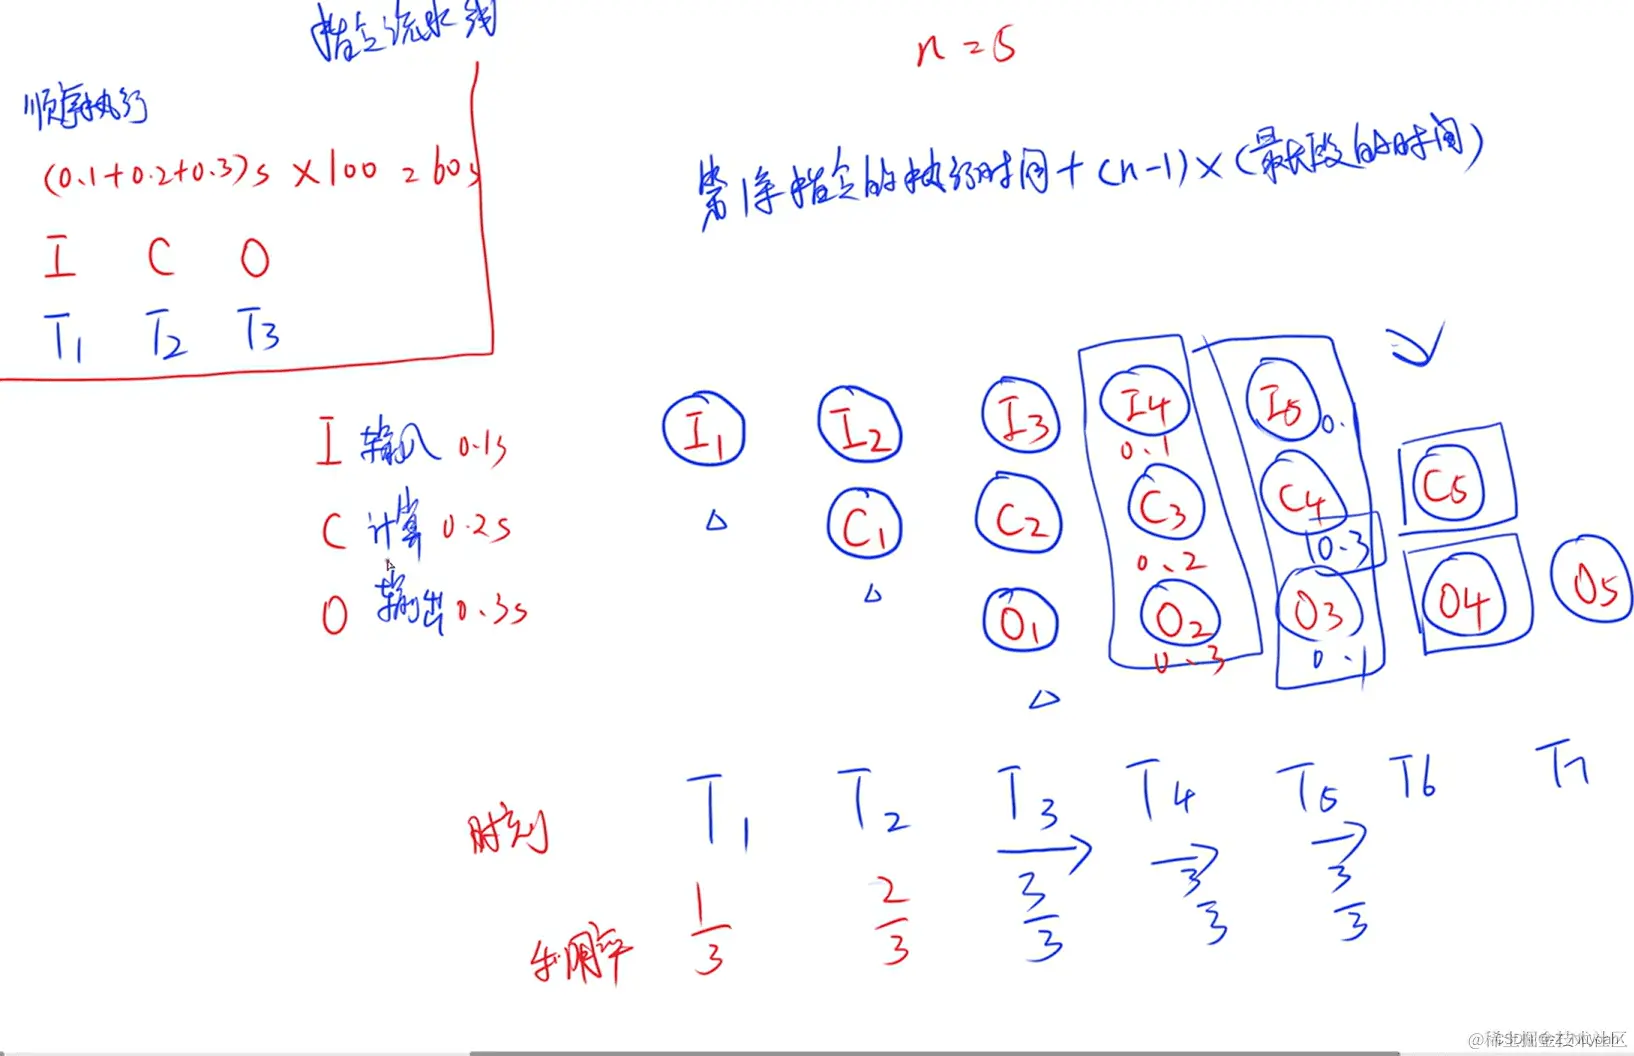 指令流水线
n = 5
顺序执行
(0.1+0.2+0.3)s ×100 = 60s
第1条指令的执行时间 + (n-1) × (最长段的时间)
I C O
T1 T2 T3
I 输入 0.1s
C 计算 0.2s
O 输出 0.3s
I1 I2 I3 I4 I5
0.1 0.
C1 C2 C3 C4 C5
0.2 0.3
O1 O2 O3 O4 O5
0.3 0.1
时刻 T1 T2 T3 T4 T5 T6 T7
利用率 1/3 2/3 3/3 3/3 3/3